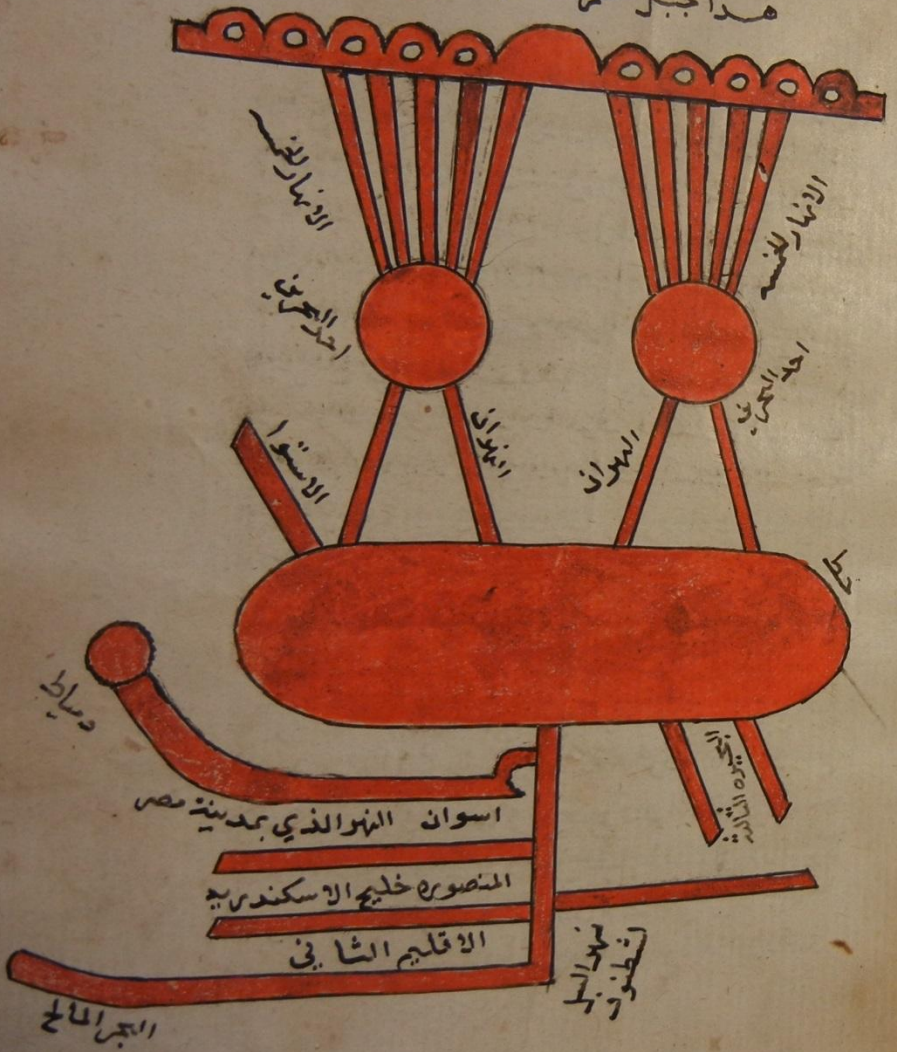 هذا جبل
الانهار الخمسه
الانهار الخمسه
احد البحرين
احد البحرين
النهران
النهران
الاستوا
خط
دمياط
البحيره الثالثة
اسوان النهر الذي بمدينة مصر
المنصوره خليج الاسكندريه
الاقليم الثاني
نهر النيل
البحر المالح